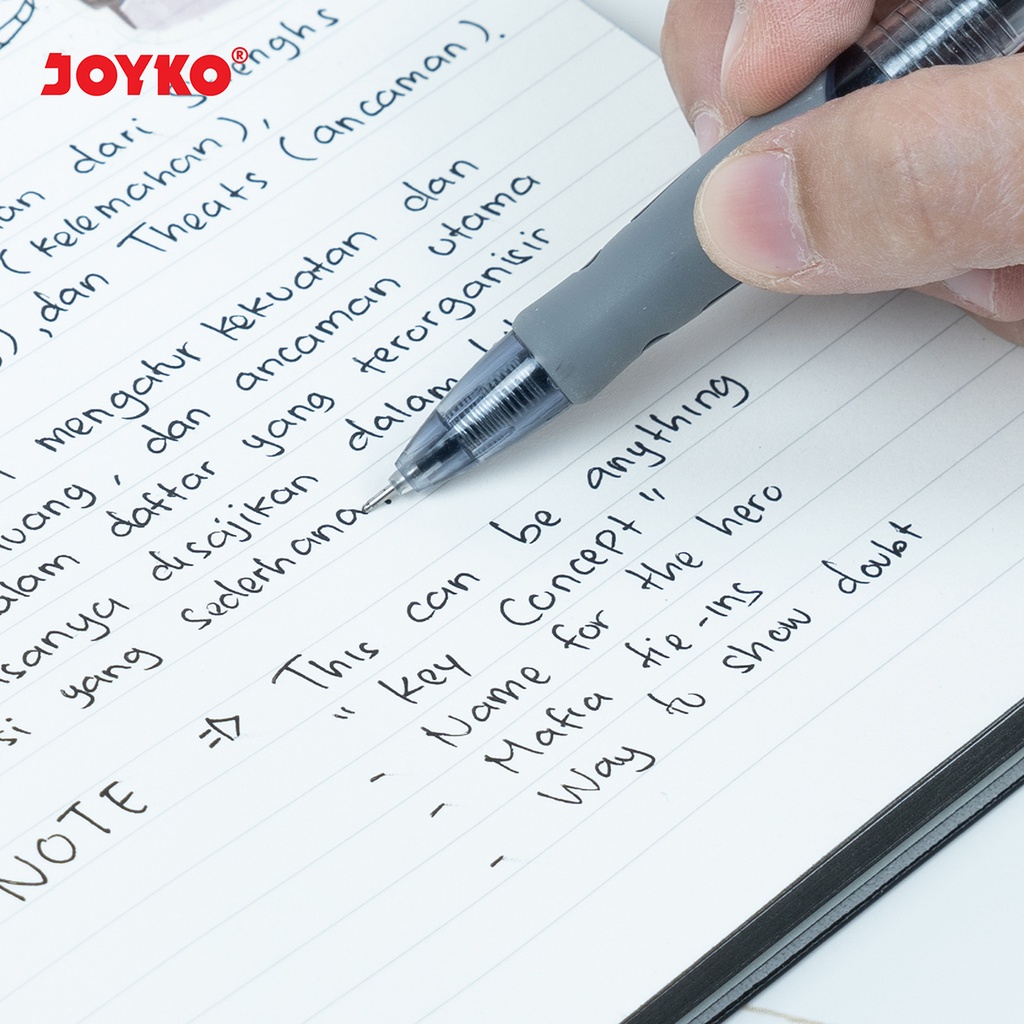 JOYKO®
dari
(kelemahan),
,dan Theats (ancaman).
mengatur kekuatan dan
, dan ancaman utama
daftar yang terorganisir
disajikan dalam
yang sederhana
NOTE => This can be anything
" Key Concept "
- Name for the hero
- Mafia tie-ins
- Way to show doubt